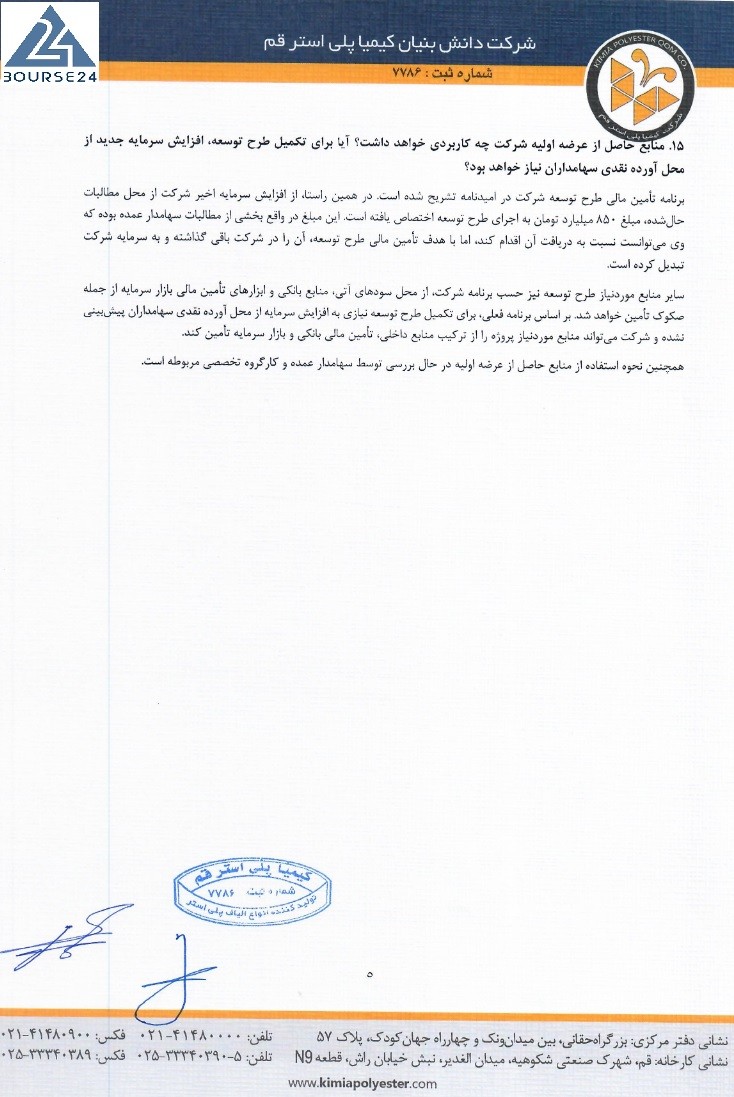 BOURSE24
شرکت دانش بنیان کیمیا پلی استر قم
شماره ثبت : ۷۷۸۶
KIMIA POLYESTER QOM CO.
شرکت کیمیا پلی استر قم
۱۵. منابع حاصل از عرضه اولیه شرکت چه کاربردی خواهد داشت؟ آیا برای تکمیل طرح توسعه، افزایش سرمایه جدید از
محل آورده نقدی سهامداران نیاز خواهد بود؟
برنامه تأمین مالی طرح توسعه شرکت در امیدنامه تشریح شده است. در همین راستا، از افزایش سرمایه اخیر شرکت از محل مطالبات
حال‌شده، مبلغ ۸۵۰ میلیارد تومان به اجرای طرح توسعه اختصاص یافته است. این مبلغ در واقع بخشی از مطالبات سهامدار عمده بوده که
وی می‌توانست نسبت به دریافت آن اقدام کند، اما با هدف تأمین مالی طرح توسعه، آن را در شرکت باقی گذاشته و به سرمایه شرکت
تبدیل کرده است.
سایر منابع موردنیاز طرح توسعه نیز حسب برنامه شرکت، از محل سودهای آتی، منابع بانکی و ابزارهای تأمین مالی بازار سرمایه از جمله
صکوک تأمین خواهد شد. بر اساس برنامه فعلی، برای تکمیل طرح توسعه نیازی به افزایش سرمایه از محل آورده نقدی سهامداران پیش‌بینی
نشده و شرکت می‌تواند منابع موردنیاز پروژه را از ترکیب منابع داخلی، تأمین مالی بانکی و بازار سرمایه تأمین کند.
همچنین نحوه استفاده از منابع حاصل از عرضه اولیه در حال بررسی توسط سهامدار عمده و کارگروه تخصصی مربوطه است.
کیمیا پلی استر قم
شماره ثبت ۷۷۸۶
تولید کننده انواع الیاف پلی استر
۵
نشانی دفتر مرکزی: بزرگراه‌حقانی، بین میدان‌ونک و چهارراه جهان‌کودک، پلاک ۵۷ تلفن: ۰۲۱-۴۱۴۸۰۰۰۰ فکس: ۰۲۱-۴۱۴۸۰۹۰۰
نشانی کارخانه: قم، شهرک صنعتی شکوهیه، میدان الغدیر، نبش خیابان راش، قطعه N9 تلفن: ۵-۰۲۵-۳۳۳۴۰۳۹۰ فکس: ۰۲۵-۳۳۳۴۰۳۸۹
www.kimiapolyester.com